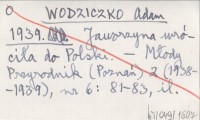 WODZICZKO Adam
1939. Jaworzyna wró-
ciła do Polski. — Młody
Przyrodnik (Poznań) 2 (1938
-1939), nr 6: 81-83, il.